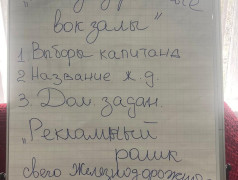 вокзалы"
1 Выборы капитана
2 Название ж д.
3. Дом. задан.
„Рекламный
ролик
своего железнодорожно-